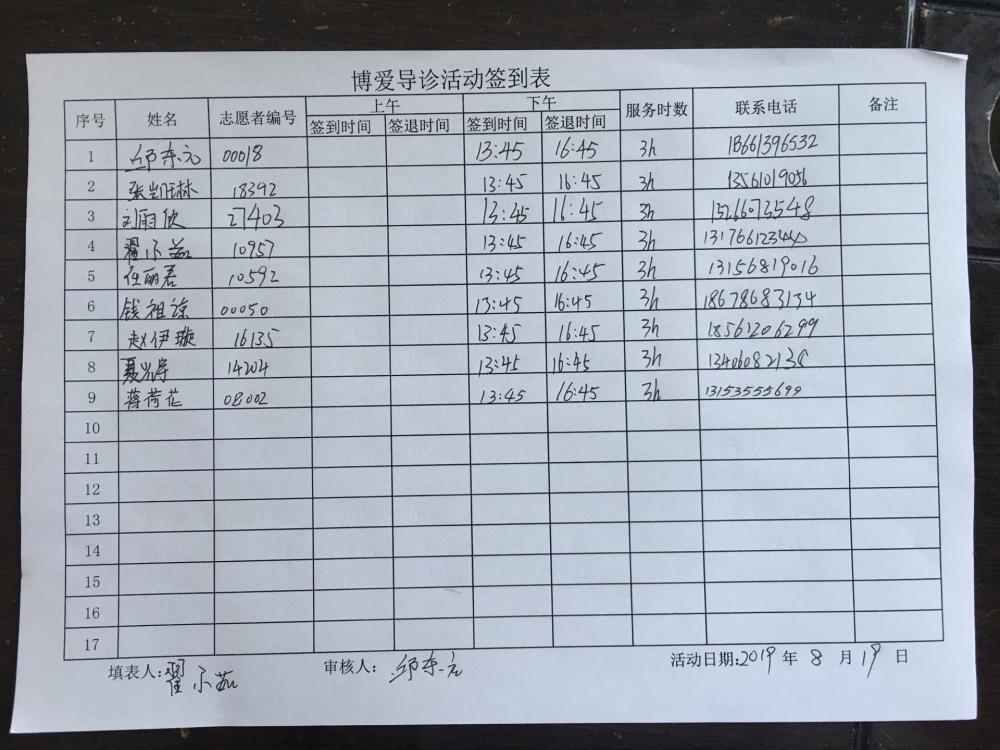 博爱导诊活动签到表
序号 姓名 志愿者编号 上午 下午 服务时数 联系电话 备注
签到时间 签退时间 签到时间 签退时间
1 邱东元 00018 13:45 16:45 3h 18661396532
2 张凯琳 18392 13:45 16:45 3h 13561019056
3 刘雨欣 27403 13:45 16:45 3h 15266073548
4 翟尔茹 10957 13:45 16:45 3h
5 任丽君 10592 13:45 16:45 3h 13156819016
6 钱祖琼 00050 13:45 16:45 3h 18678683134
7 赵伊璇 16135 13:45 16:45 3h 18561206299
8 14204 13:45 16:45 3h
9 蒋荷花 08002 13:45 16:45 3h 13153555699
10
11
12
13
14
15
16
17
填表人:翟尔茹 审核人:邱东元 活动日期:2019 年 8 月 19 日